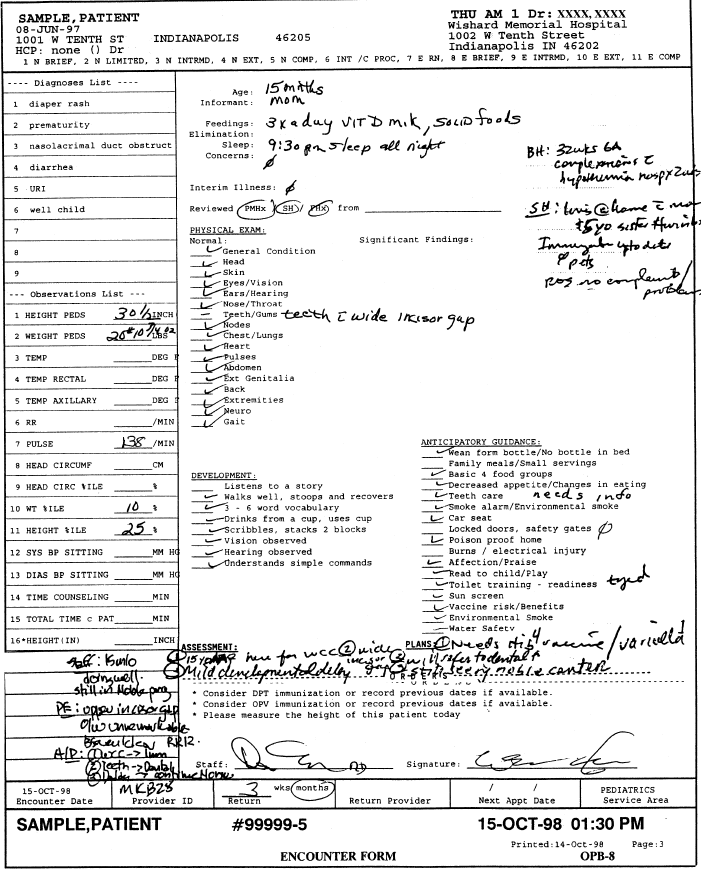 SAMPLE,PATIENT
08-JUN-97
1001 W TENTH ST INDIANAPOLIS 46205
HCP: none () Dr
THU AM 1 Dr: XXXX, XXXX
Wishard Memorial Hospital
1002 W Tenth Street
Indianapolis IN 46202
1 N BRIEF, 2 N LIMITED, 3 N INTRMD, 4 N EXT, 5 N COMP, 6 INT /C PROC, 7 E RN, 8 E BRIEF, 9 E INTRMD, 10 E EXT, 11 E COMP
---- Diagnoses List ----
1 diaper rash
2 prematurity
3 nasolacrimal duct obstruct
4 diarrhea
5 URI
6 well child
7
8
9
--- Observations List ---
1 HEIGHT PEDS 30 1/2 INCH
2 WEIGHT PEDS LBS
3 TEMP DEG F
4 TEMP RECTAL DEG F
5 TEMP AXILLARY DEG F
6 RR /MIN
7 PULSE 138 /MIN
8 HEAD CIRCUMF CM
9 HEAD CIRC %ILE %
10 WT %ILE 10 %
11 HEIGHT %ILE 25 %
12 SYS BP SITTING MM HG
13 DIAS BP SITTING MM HG
14 TIME COUNSELING MIN
15 TOTAL TIME c PAT MIN
16*HEIGHT(IN) INCH
Age: 15 months
Informant: mom
Feedings: 3 x a day VIT D milk, SOLID foods
Elimination:
Sleep: 9:30 pm sleep all night
Concerns: ∅
Interim Illness: ∅
Reviewed PMHx / SH / FHx from
BH: 32wks GA
complications c̄
hypothermia hosp x 2wks
SH: lives @ home c̄ mom
5 yo sister
Immunization up to date
∅ pets
ROS no complaints/
problems
PHYSICAL EXAM:
Normal: Significant Findings:
General Condition
Head
Skin
Eyes/Vision
Ears/Hearing
Nose/Throat
Teeth/Gums teeth c̄ wide incisor gap
Nodes
Chest/Lungs
Heart
Pulses
Abdomen
Ext Genitalia
Back
Extremities
Neuro
Gait
DEVELOPMENT:
Listens to a story
Walks well, stoops and recovers
3 - 6 word vocabulary
Drinks from a cup, uses cup
Scribbles, stacks 2 blocks
Vision observed
Hearing observed
Understands simple commands
ANTICIPATORY GUIDANCE:
Wean form bottle/No bottle in bed
Family meals/Small servings
Basic 4 food groups
Decreased appetite/Changes in eating
Teeth care needs info
Smoke alarm/Environmental smoke
Car seat
Locked doors, safety gates ∅
Poison proof home
Burns / electrical injury
Affection/Praise
Read to child/Play
Toilet training - readiness
Sun screen
Vaccine risk/Benefits
Environmental Smoke
Water Safety
ASSESSMENT:
① here for wcc ② wide incisor gap
③ Mild developmental delay
PLANS: ① Needs vaccine / varicella
② will refer to dental
ORDERS
* Consider DPT immunization or record previous dates if available.
* Consider OPV immunization or record previous dates if available.
* Please measure the height of this patient today
Staff: 15mo
doing well.
still in
PE: upper incisor gap
o/w unremarkable
A/P: ① wcc → Imm
② Teeth → Dental
③ Delay → continue
Staff: Signature:
15-OCT-98
Encounter Date
MKB28
Provider ID
3 wks/months
Return
Return Provider
/ /
Next Appt Date
PEDIATRICS
Service Area
SAMPLE,PATIENT #99999-5 15-OCT-98 01:30 PM
Printed:14-Oct-98 Page:3
ENCOUNTER FORM OPB-8